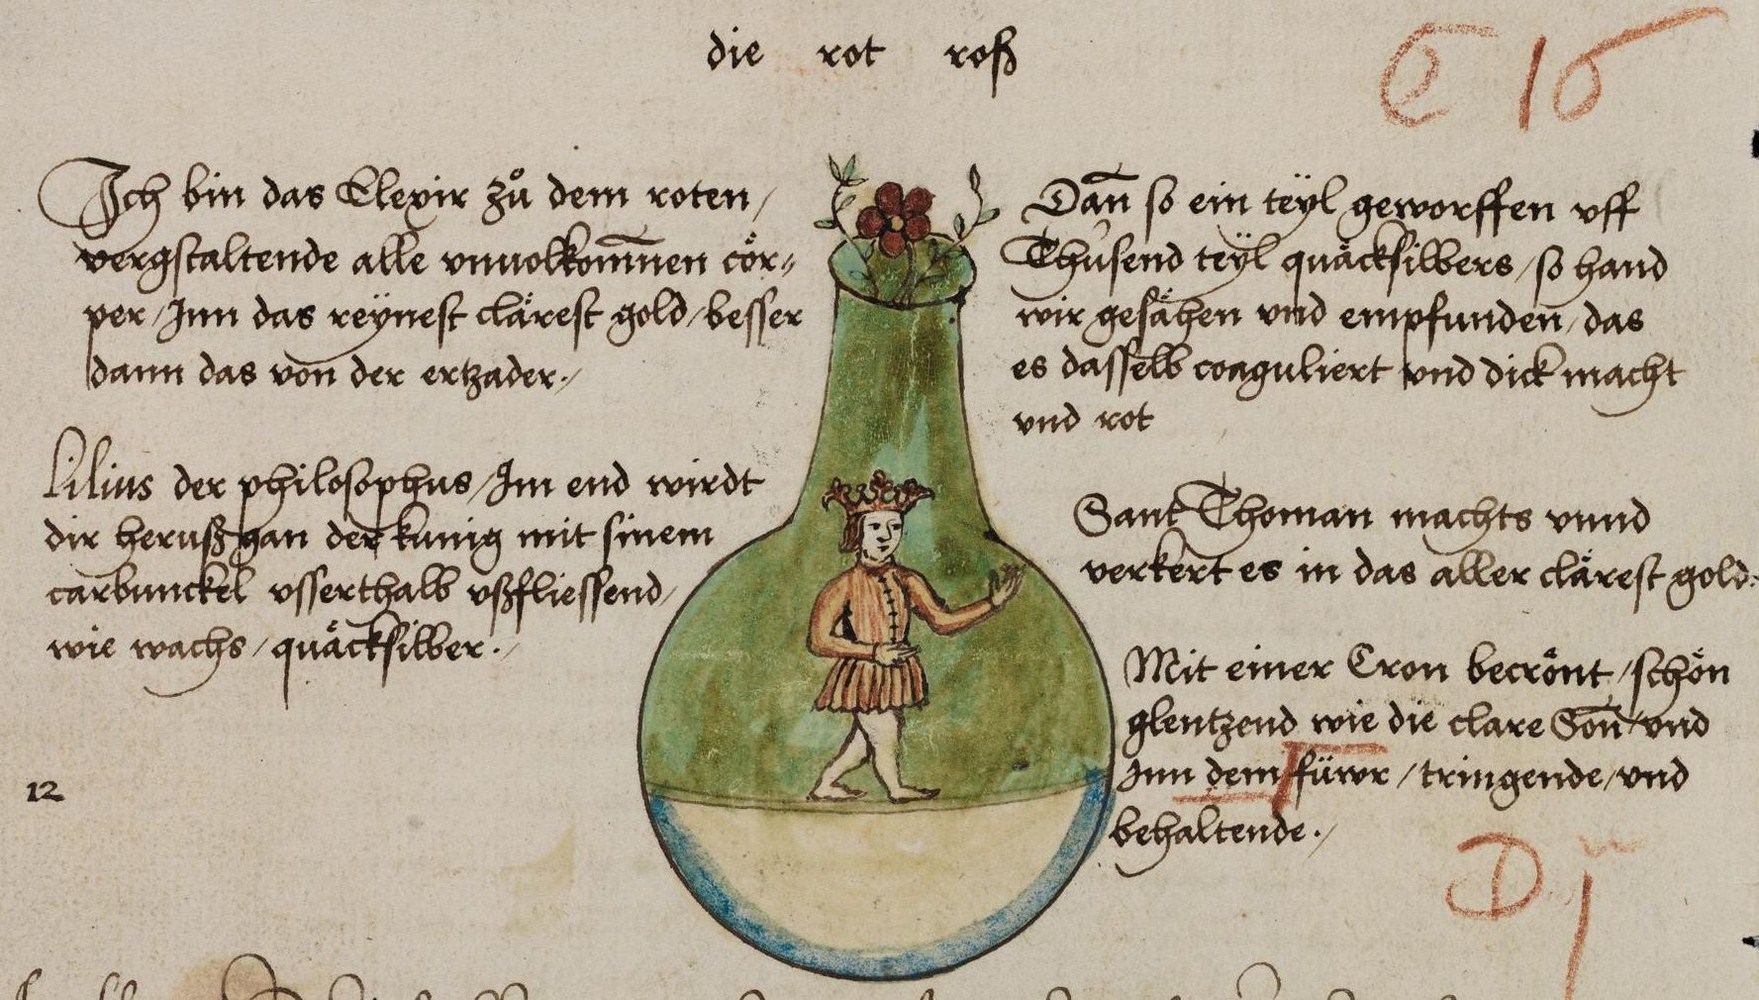 die rot roß
C 16
Ich bin das Elexir zů dem roten /
vergstaltende alle vnuolkom̄nen cör-
per / Jnn das reÿnest clärest gold / besser
dann das von der ertzader ·/
Lilius der philosophus / Jm end wirdt
dir herußgan der kunig mit sinem
carbunckel vsserthalb vßfliessend /
wie wachs / quäcksilber ·/
12
Dan̄ so ein teÿl geworffen vff
Thusend teÿl quäcksilbers / so hand
wir gesähen vnd empfunden / das
es dasselb coaguliert vnd dick macht
vnd rot
Sant Thoman machts vnnd
verkert es in das aller clärest gold:
Mit einer Cron becrönt / schön
glentzend wie die clare Son̄ vnd
Jnn dem füwr / tringende / vnd
behaltende ·/
D j